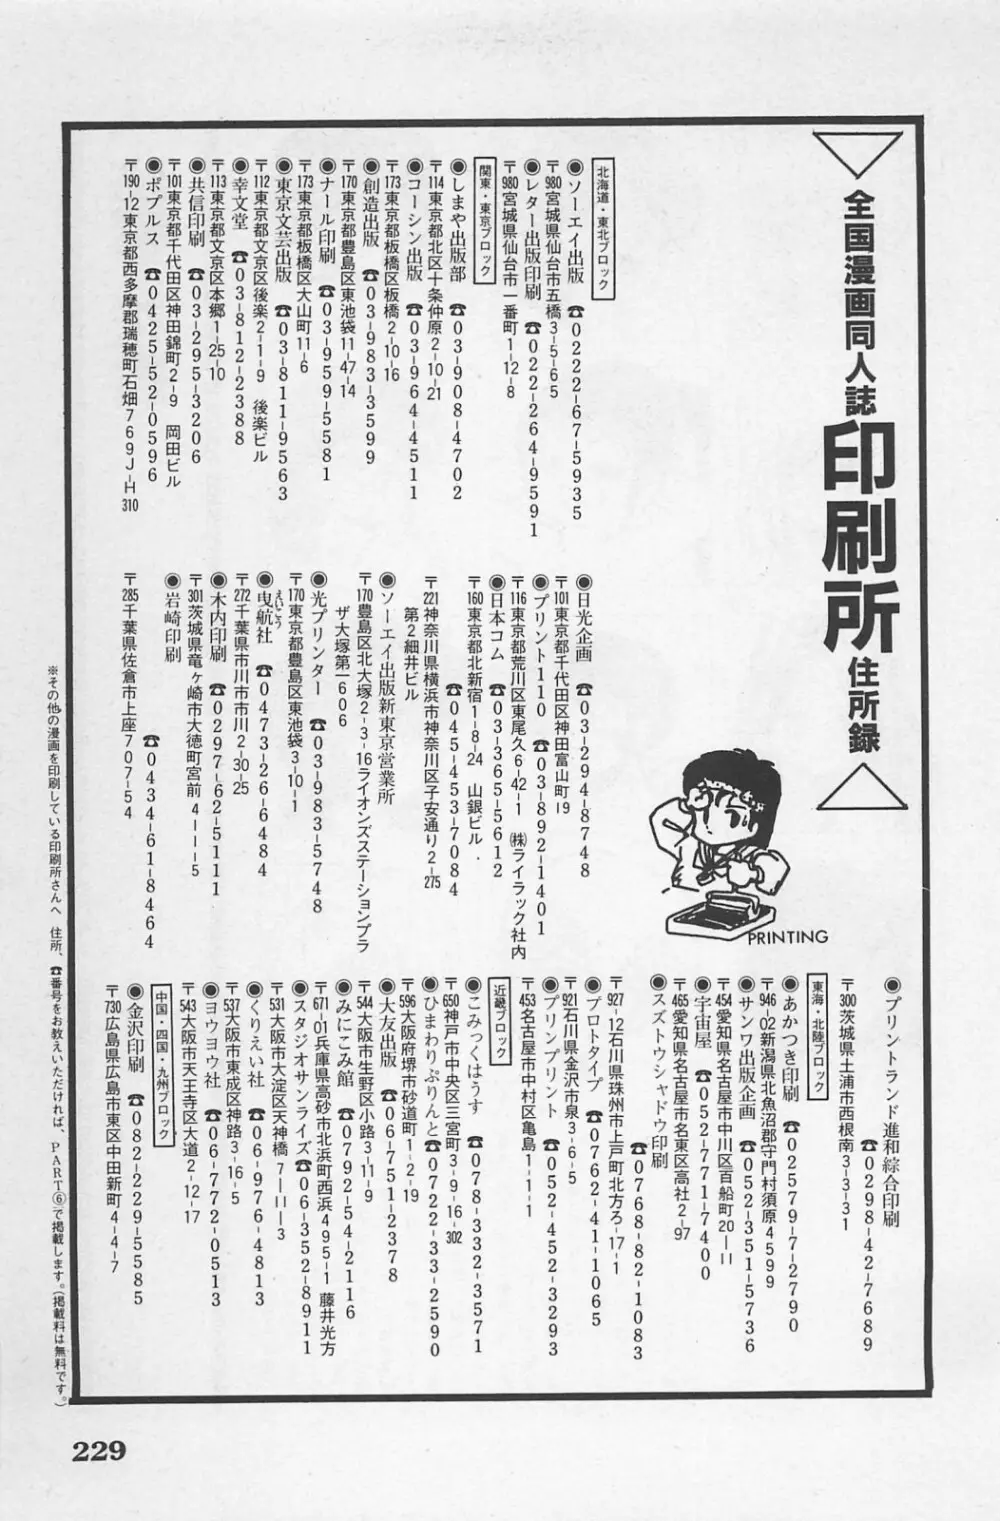 全国漫画同人誌印刷所住所録
PRINTING
北海道・東北ブロック
●ソーエイ出版 ☎0222-67-5935
〒980宮城県仙台市五橋3-5-65
●レター出版印刷 ☎022-264-9591
〒980宮城県仙台市一番町1-12-8
関東・東京ブロック
●しまや出版部 ☎03-908-4702
〒114東京都北区十条仲原2-10-21
●コーシン出版 ☎03-964-4511
〒173東京都板橋区板橋2-10-16
●創造出版 ☎03-983-3599
〒170東京都豊島区東池袋11-47-14
●ナール印刷 ☎03-959-5581
〒173東京都板橋区大山町11-6
●東京文芸出版 ☎03-811-9563
〒112東京都文京区後楽2-1-9 後楽ビル
●幸文堂 ☎03-812-2388
〒113東京都文京区本郷1-25-10
●共信印刷 ☎03-295-3206
〒101東京都千代田区神田錦町2-9 岡田ビル
●ポプルス ☎0425-52-0596
〒190-12東京都西多摩郡瑞穂町石畑769J-H310
●日光企画 ☎03-294-8748
〒101東京都千代田区神田富山町19
●プリント110 ☎03-892-1401
〒116東京都荒川区東尾久6-42-1 ㈱ライラック社内
●日本コム ☎03-365-5612
〒160東京都北新宿1-8-24 山銀ビル
☎045-453-7084
〒221神奈川県横浜市神奈川区子安通り2-275
第2細井ビル
●ソーエイ出版新東京営業所
〒170豊島区北大塚2-3-16ライオンズステーションプラ
ザ大塚第一606
●光プリンター ☎03-983-5748
〒170東京都豊島区東池袋3-10-1
えいこう
●曳航社 ☎0473-26-6484
〒272千葉県市川市市川2-30-25
●木内印刷 ☎0297-62-5111
〒301茨城県竜ヶ崎市大徳町宮前4-1-5
●岩崎印刷
☎0434-61-8464
〒285千葉県佐倉市上座707-54
●プリントランド進和綜合印刷
☎0298-42-7689
〒300茨城県土浦市西根南3-3-31
東海・北陸ブロック
●あかつき印刷 ☎02579-7-2790
〒946-02新潟県北魚沼郡守門村須原4599
●サンワ出版企画 ☎052-351-5736
〒454愛知県名古屋市中川区百船町20-11
●宇宙屋 ☎052-771-7400
〒465愛知県名古屋市名東区高社2-97
●スズトウシャドウ印刷
☎0768-82-1083
〒927-12石川県珠州市上戸町北方ろ-17-1
●プロトタイプ ☎0762-41-1065
〒921石川県金沢市泉3-6-5
●プリンプリント ☎052-452-3293
〒453名古屋市中村区亀島1-1-1
近畿ブロック
●こみっくはうす ☎078-332-3571
〒650神戸市中央区三宮町3-9-16-302
●ひまわりぷりんと ☎0722-33-2590
〒596大阪府堺市砂道町1-2-19
●大友出版 ☎06-751-2378
〒544大阪市生野区小路3-11-9
●みにこみ館 ☎0792-54-2116
〒671-01兵庫県高砂市北浜町西浜495-1 藤井光方
●スタジオサンライズ ☎06-352-8911
〒531大阪市大淀区天神橋7-11-3
●くりえい社 ☎06-976-4813
〒537大阪市東成区神路3-16-5
●ヨウヨウ社 ☎06-772-0513
〒543大阪市天王寺区大道2-12-17
中国・四国・九州ブロック
●金沢印刷 ☎082-229-5585
〒730広島県広島市東区中田新町4-4-7
※その他の漫画を印刷している印刷所さんへ 住所、☎番号をお教えいただければ、PART⑥で掲載します。(掲載料は無料です。)
229